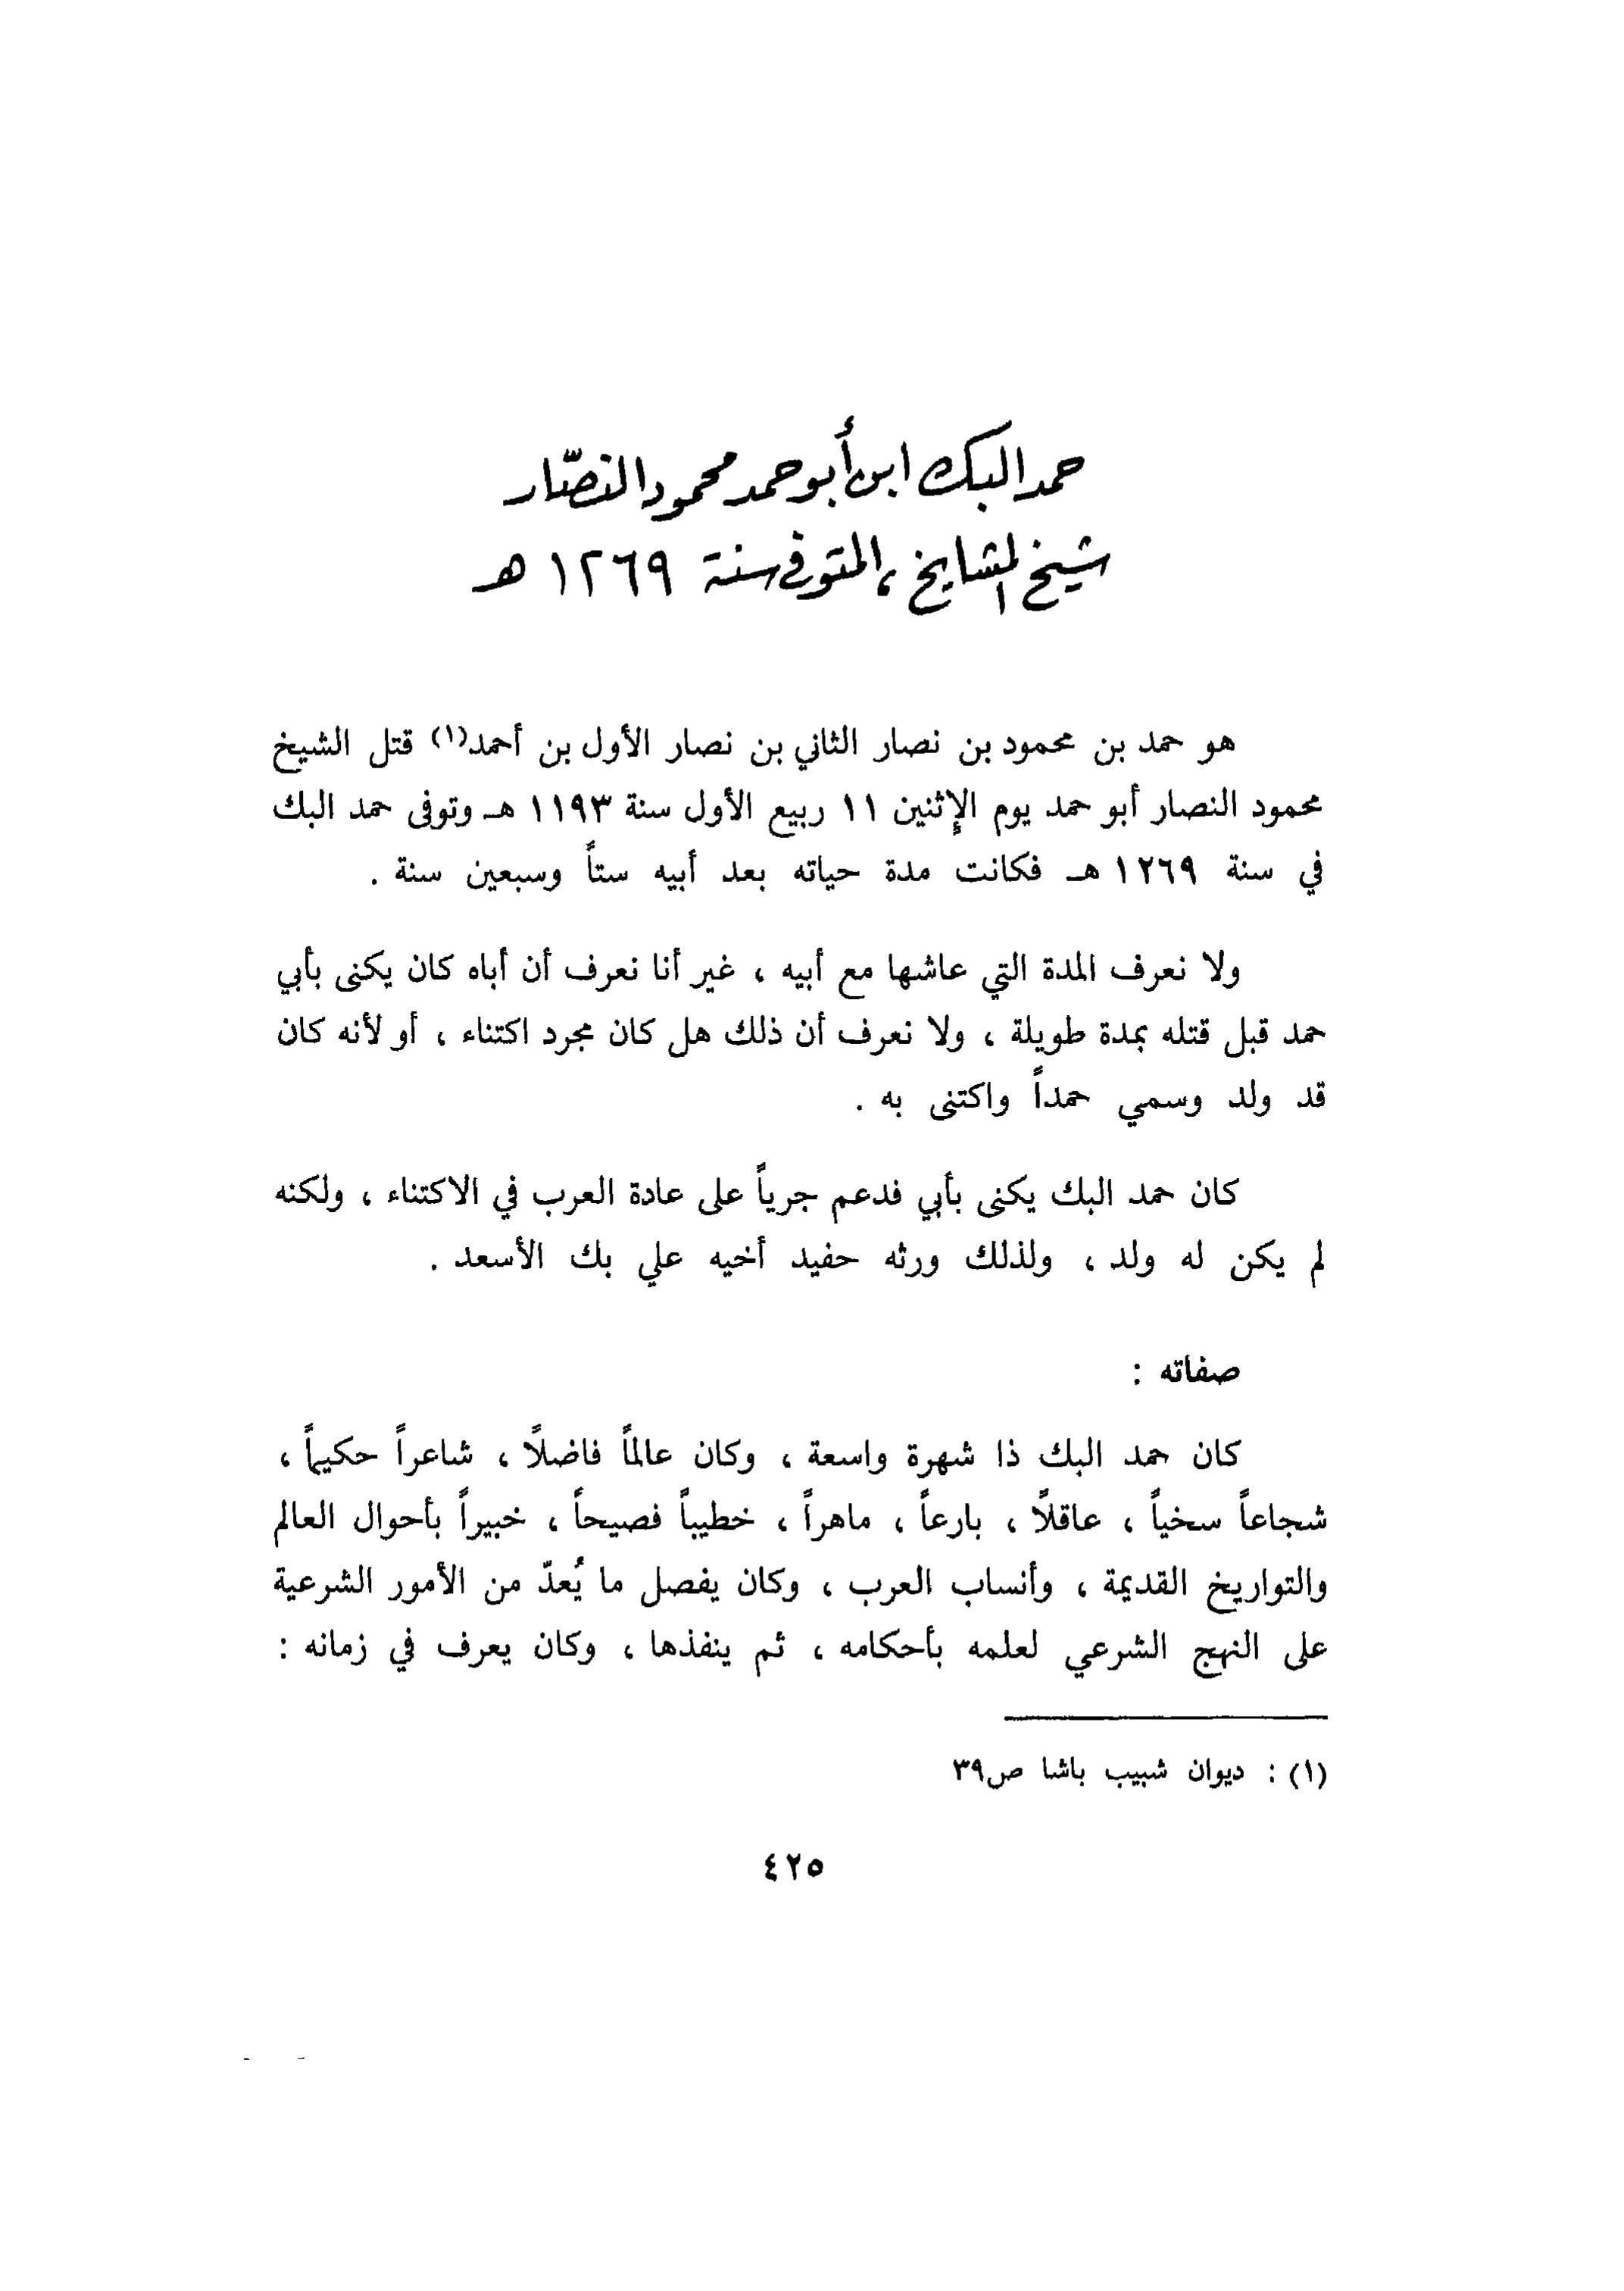 حمد البك ابن أبو حمد محمود النصّار
شيخ المشايخ ، المتوفى سنة ١٢٦٩ هـ
هو حمد بن محمود بن نصار الثاني بن نصار الأول بن أحمد(١) قتل الشيخ
محمود النصار أبو حمد يوم الإثنين ١١ ربيع الأول سنة ١١٩٣ هـ وتوفى حمد البك
في سنة ١٢٦٩ هـ فكانت مدة حياته بعد أبيه ستاً وسبعين سنة .
ولا نعرف المدة التي عاشها مع أبيه ، غير أنا نعرف أن أباه كان يكنى بأبي
حمد قبل قتله بمدة طويلة ، ولا نعرف أن ذلك هل كان مجرد اكتناء ، أو لأنه كان
قد ولد وسمي حمداً واكتنى به .
كان حمد البك يكنى بأبي فدعم جرياً على عادة العرب في الاكتناء ، ولكنه
لم يكن له ولد ، ولذلك ورثه حفيد أخيه علي بك الأسعد .
صفاته :
كان حمد البك ذا شهرة واسعة ، وكان عالماً فاضلًا ، شاعراً حكيماً ،
شجاعاً سخياً ، عاقلًا ، بارعاً ، ماهراً ، خطيباً فصيحاً ، خبيراً بأحوال العالم
والتواريخ القديمة ، وأنساب العرب ، وكان يفصل ما يُعدّ من الأمور الشرعية
على النهج الشرعي لعلمه بأحكامه ، ثم ينفذها ، وكان يعرف في زمانه :
(١) : ديوان شبيب باشا ص٣٩
٤٢٥